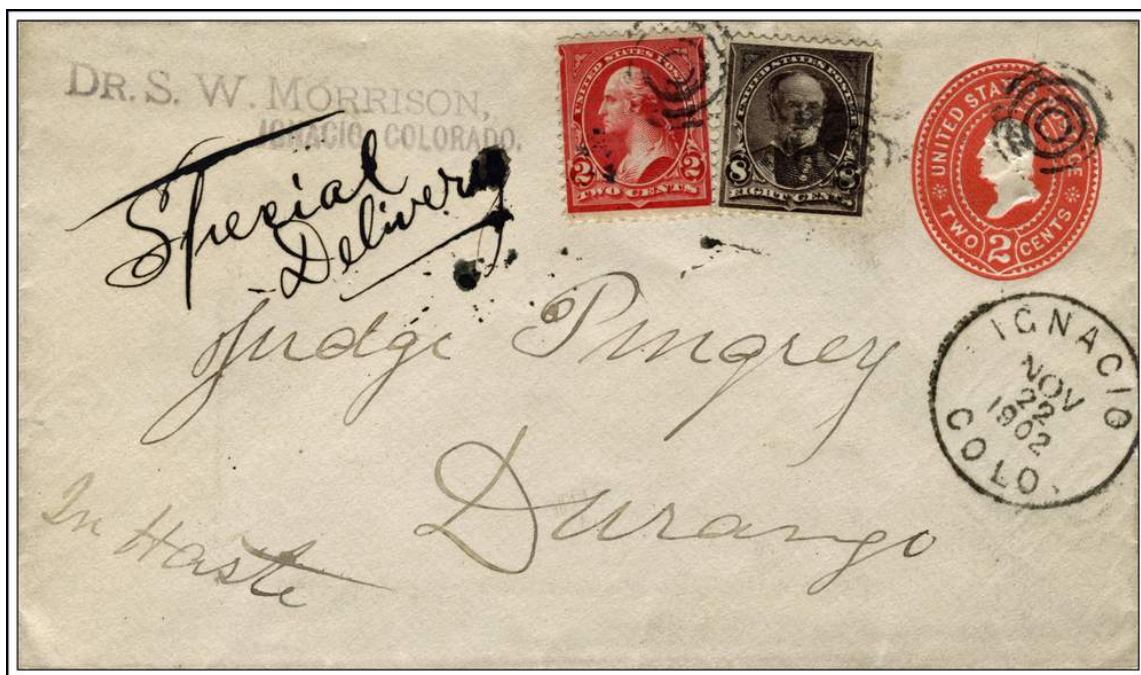 DR. S. W. MORRISON,
IGNACIO, COLORADO.
Special
Delivery
UNITED STATES POST
2 2
TWO CENTS
UNITED STATES POSTAGE
8 8
EIGHT CENTS
UNITED STATES POSTAGE
TWO 2 CENTS
IGNACIO
NOV
22
1902
COLO.
Judge Pingrey
Durango
In Haste